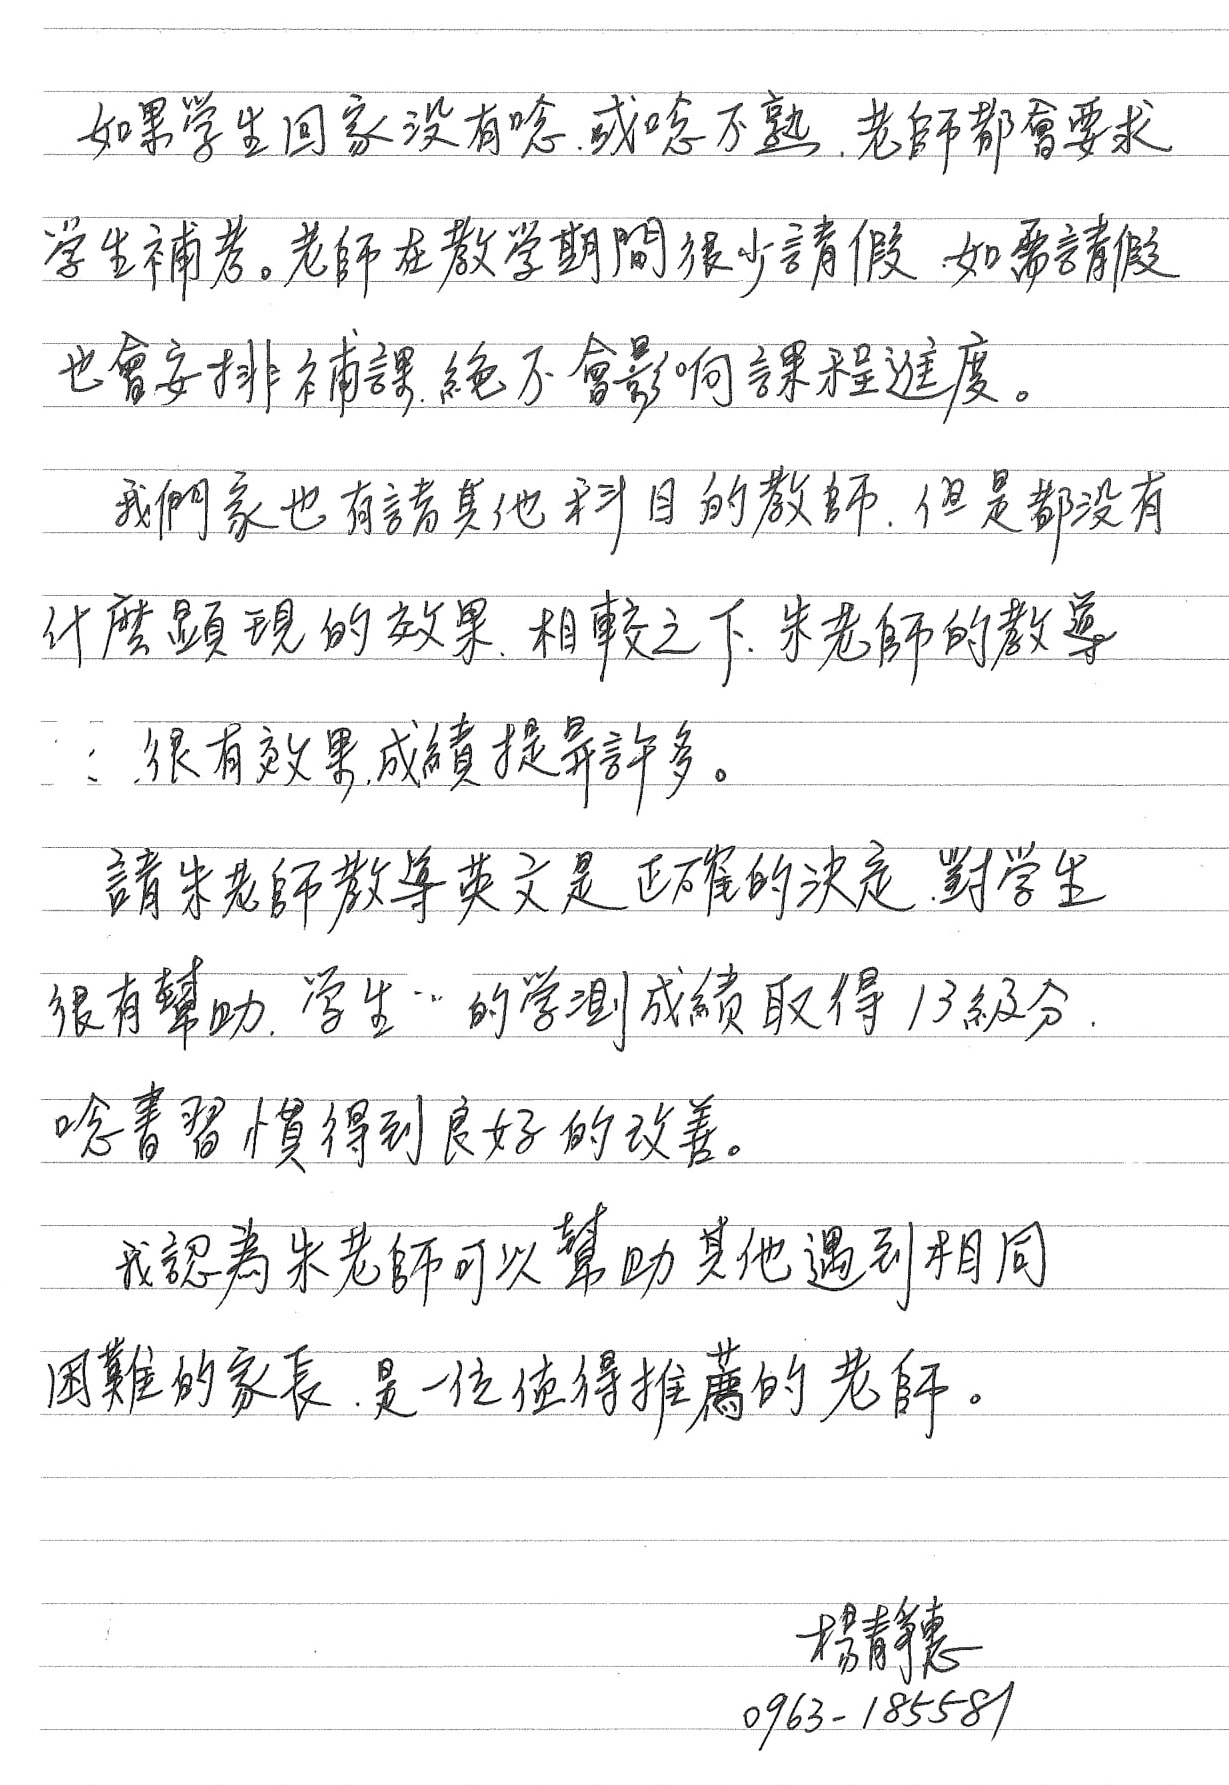 如果学生回家没有唸.或唸不熟.老師都會要求
学生補考。老師在教学期間很少請假.如需請假
也會安排補課.絶不會影响課程進度。
我們家也有請其他科目的教師.但是都没有
什麽顕現的效果.相較之下.朱老師的教導
很有效果.成績提昇許多。
請朱老師教導英文是正確的決定.對学生
很有幫助.学生 的学測成績取得13級分.
唸書習慣得到良好的改善。
我認為朱老師可以幫助其他遇到相同
困難的家長.是一位值得推薦的老師。
楊靜惠
0963-185581